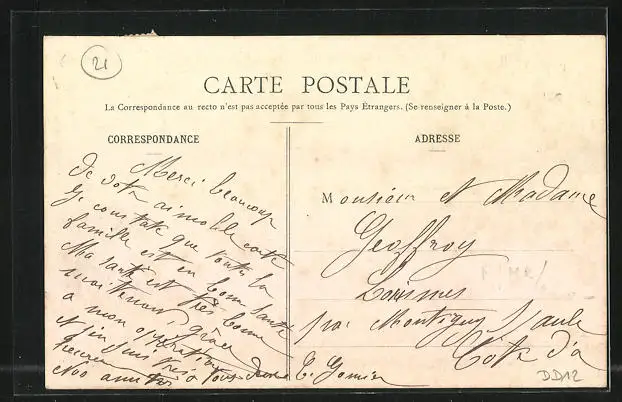 21
CARTE POSTALE
La Correspondance au recto n'est pas acceptée par tous les Pays Étrangers. (Se renseigner à la Poste.)
CORRESPONDANCE
ADRESSE
Merci beaucoup
de votre aimable carte
Je constate que toute la
famille est en bonne santé
Ma santé est très bonne
maintenant, grâce
à mon opération
et j'en suis
à tous deux
Nos
Monsieur et Madame
Geoffroy
par Montigny s/ aube
Côte d'o
DD12